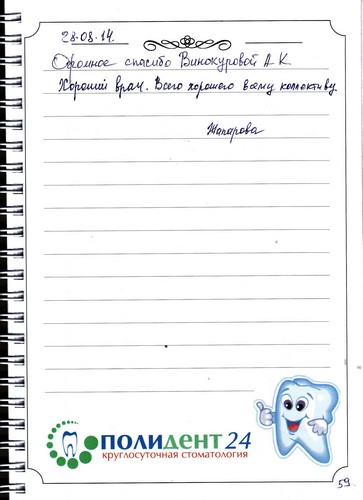 28.08.14.
Огромное спасибо Винокуровой А.К.
Хороший врач. Всего хорошего всему коллективу.
Жапарова
ПОЛИДЕНТ 24
круглосуточная стоматология
59